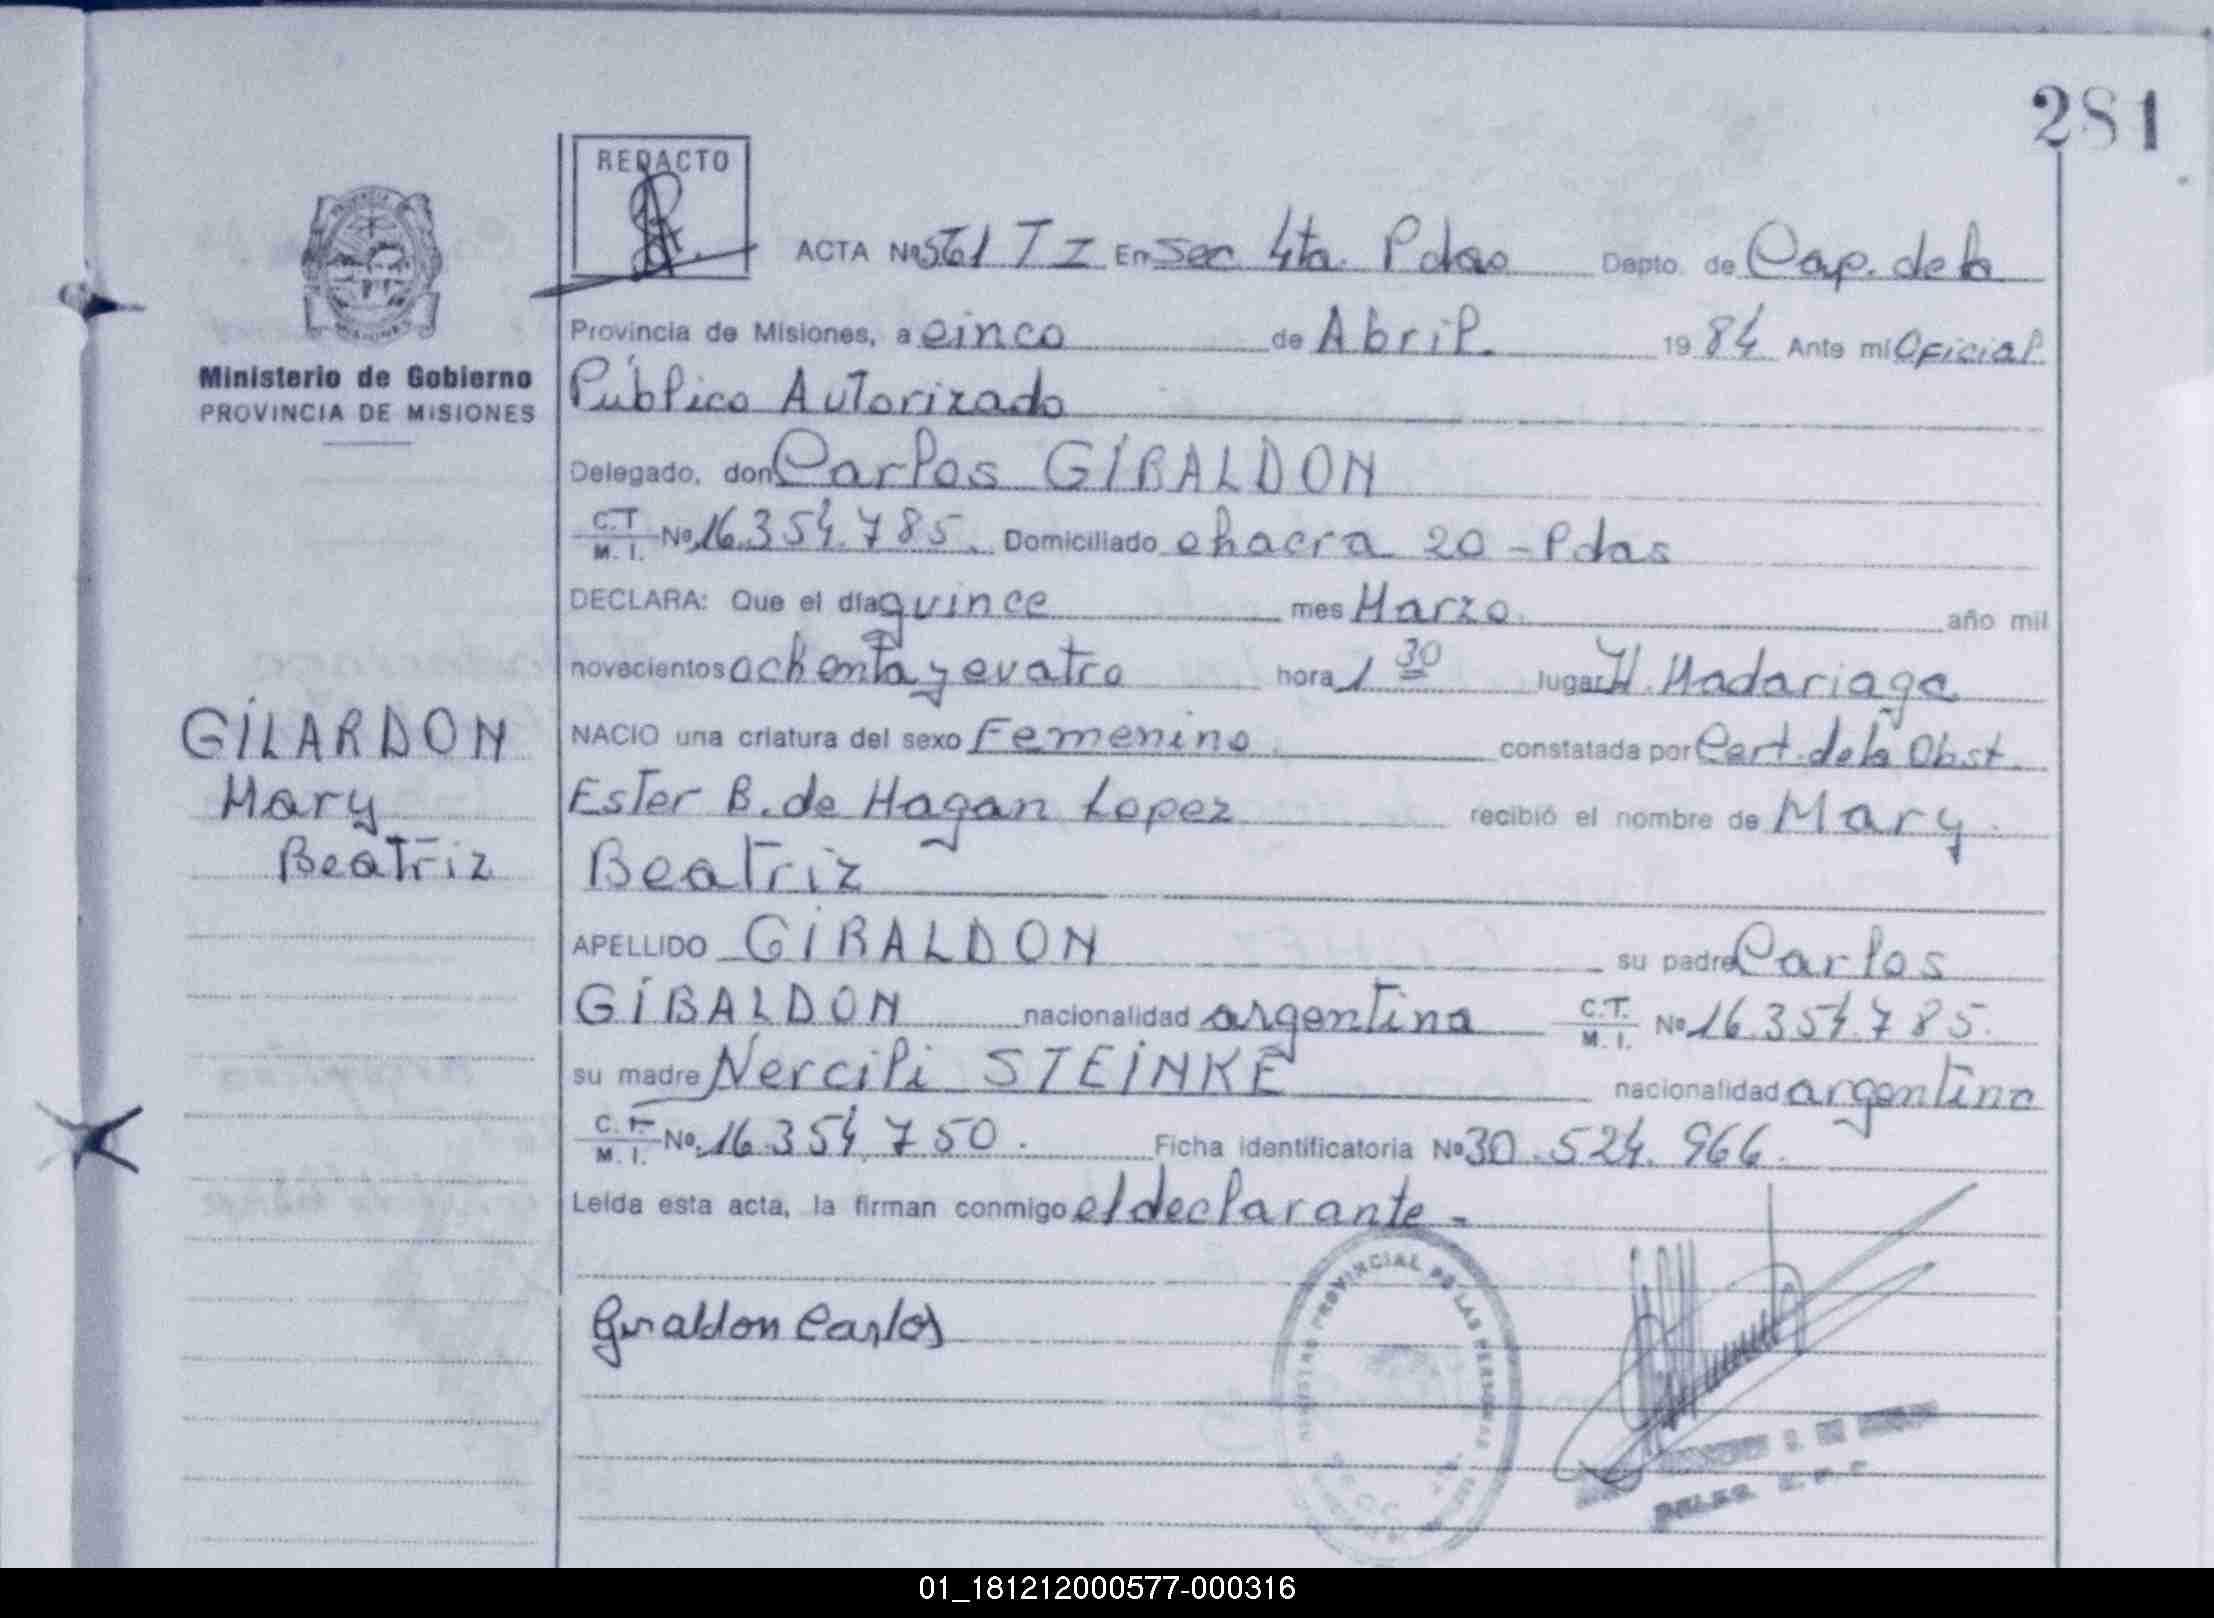 281
REDACTO
ACTA Nº 561 T I En Sec 4ta. Pdas Depto. de Cap. de la
Provincia de Misiones, a cinco de Abril. 1984 Ante mi Oficial
Ministerio de Gobierno
PROVINCIA DE MISIONES
Público Autorizado
Delegado, don Carlos GIRALDON
C.T. M. I. Nº 16.354.785. Domiciliado chacra 20 - Pdas
DECLARA: Que el día quince mes Marzo. año mil
novecientos ochenta y cuatro hora 1 30 lugar H. Madariaga
GILARDON
Mary
Beatriz
NACIO una criatura del sexo Femenino. constatada por Cert. de la Obst.
Ester B. de Hagan Lopez recibió el nombre de Mary
Beatriz
APELLIDO GIRALDON su padre Carlos
GIRALDON nacionalidad argentina C.T. M. I. Nº 16.354.785.
su madre Nercili STEINKE nacionalidad argentina
C.T. M. I. Nº 16.354.750. Ficha identificatoria Nº 30.524.966.
Leída esta acta, la firman conmigo el declarante -
Giraldon Carlos
REGISTRO PROVINCIAL DE LAS PERSONAS
01_181212000577-000316